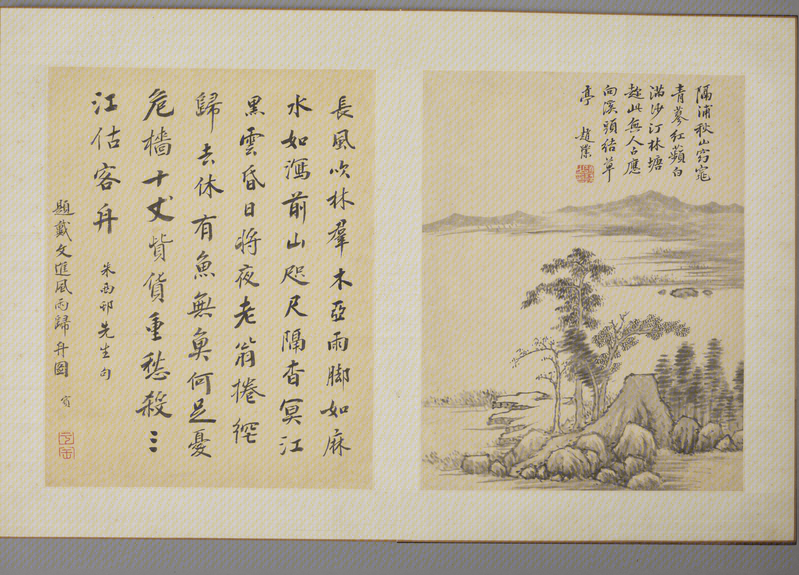 隔浦秋山窈窕
青蓼紅蘋白
滿沙汀林塘
趁此無人占應
向溪頭結草
亭 趙
長風吹林羣木亞雨脚如麻
水如瀉前山咫尺隔杳冥江
黑雲昏日將夜老翁捲網
歸去休有魚無魚何足憂
危檣十丈貲貨重愁殺三
江估客舟 朱西邨先生句
題戴文進風雨歸舟圖